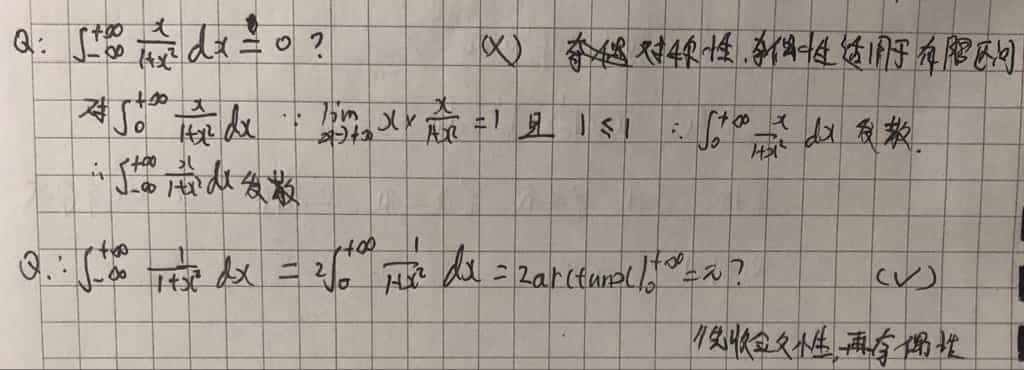 Q: ∫_{-∞}^{+∞} x/(1+x²) dx = 0 ? (×) 对称性.奇偶性适用于有限区间
对 ∫_0^{+∞} x/(1+x²) dx ∵ lim_{x→+∞} x × x/(1+x²) = 1 且 1 ≤ 1 ∴ ∫_0^{+∞} x/(1+x²) dx 发散.
∴ ∫_{-∞}^{+∞} x/(1+x²) dx 发散
Q: ∫_{-∞}^{+∞} 1/(1+x²) dx = 2∫_0^{+∞} 1/(1+x²) dx = 2arctanx|_0^{+∞} = π ? (√)
收敛性,再奇偶性